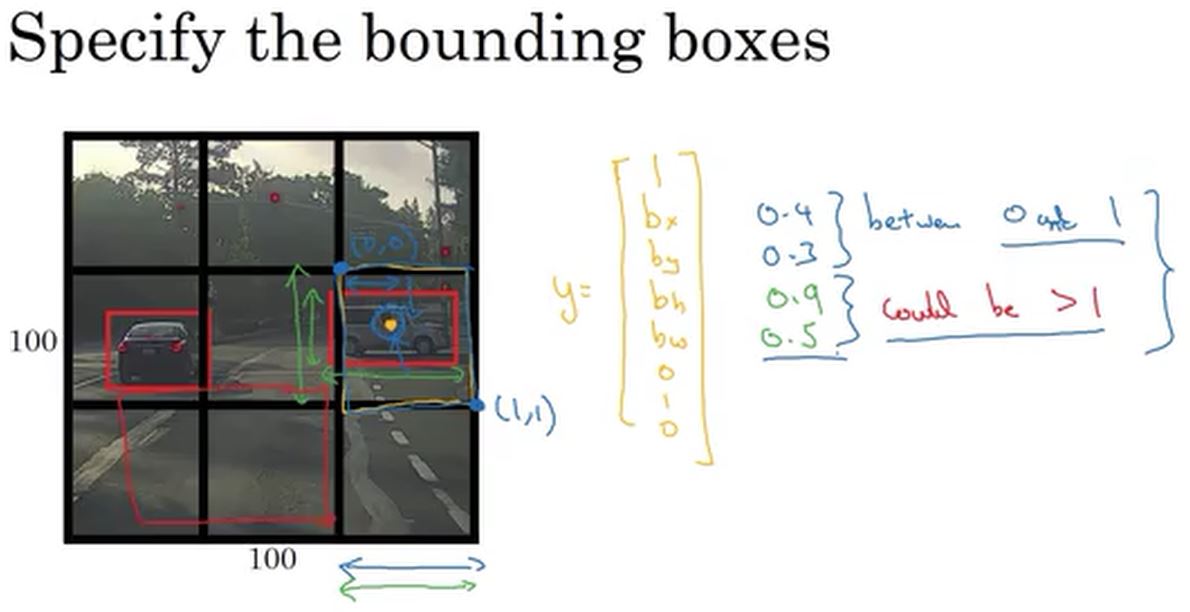 Specify the bounding boxes
(0,0)
100
100
(1,1)
y=
1
bx
by
bh
bw
0
1
0
0.4
0.3
0.9
0.5
between 0 and 1
could be >1